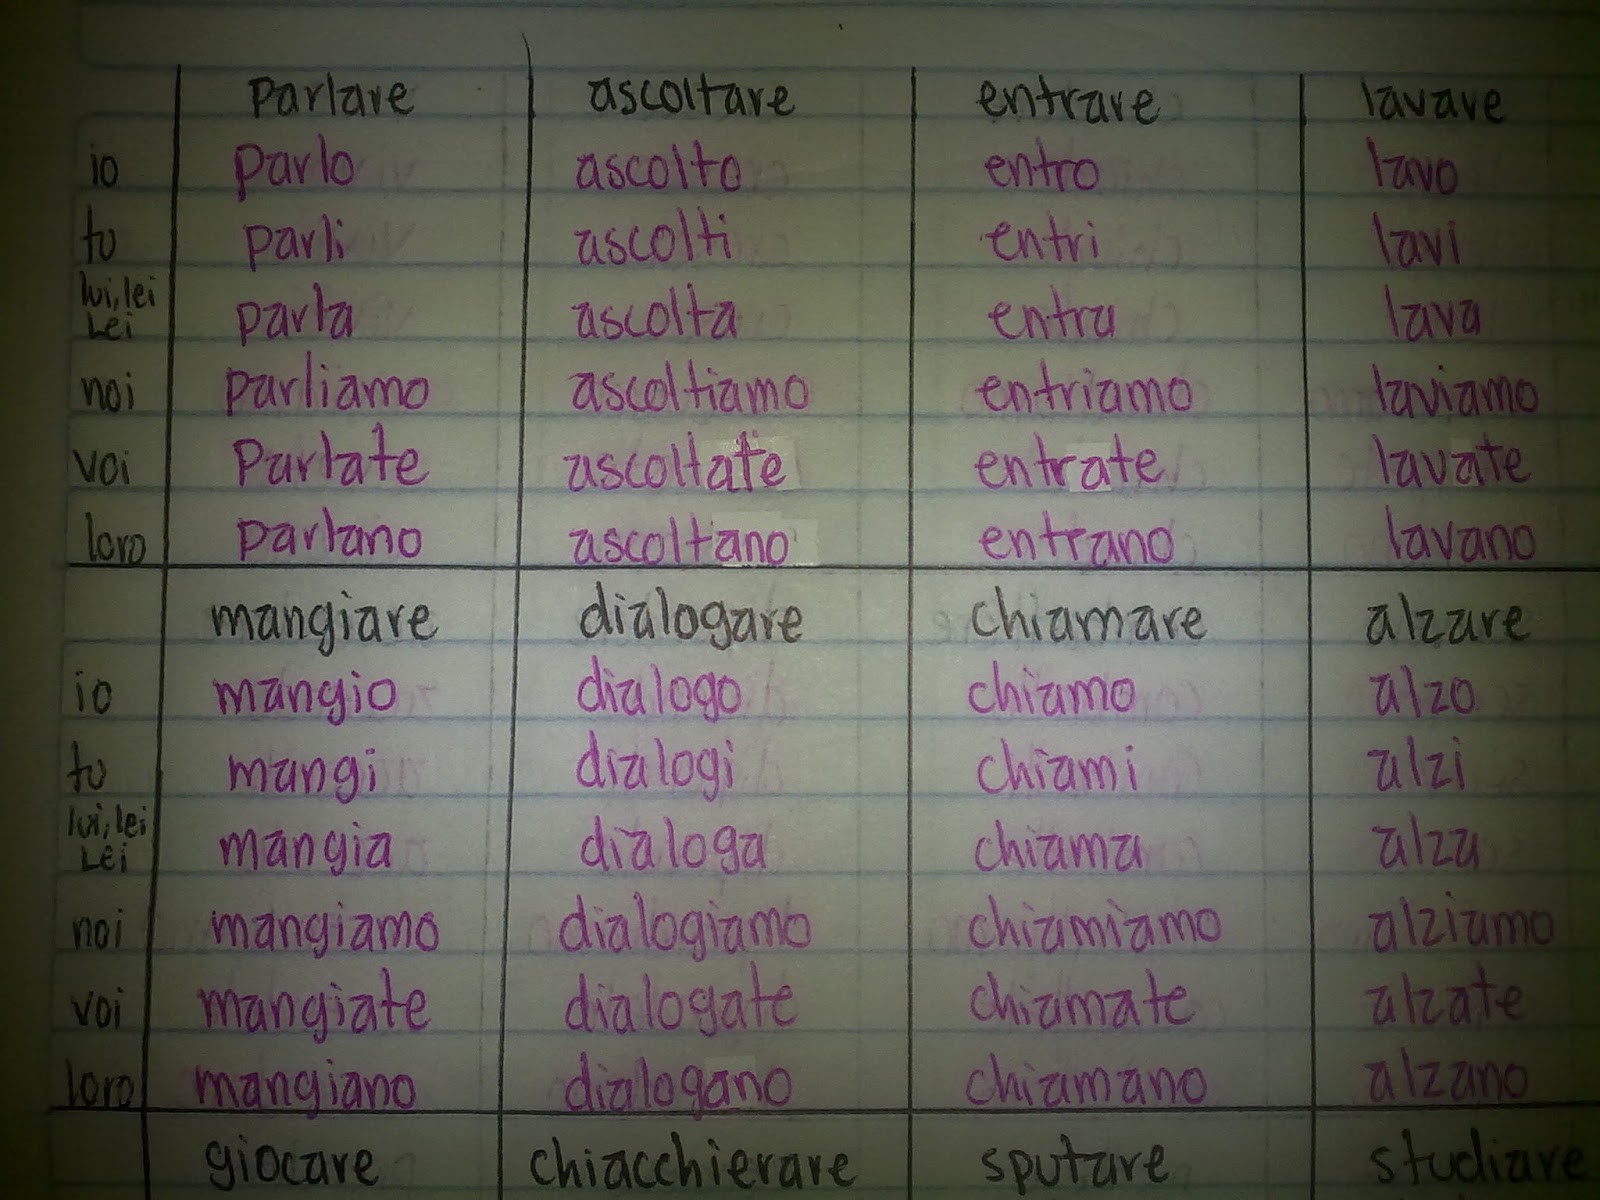 parlare ascoltare entrare lavare
io parlo ascolto entro lavo
tu parli ascolti entri lavi
lui, lei
Lei parla ascolta entra lava
noi parliamo ascoltiamo entriamo laviamo
voi Parlate ascoltate entrate lavate
loro parlano ascoltano entrano lavano
mangiare dialogare chiamare alzare
io mangio dialogo chiamo alzo
tu mangi dialogi chiami alzi
lui, lei
Lei mangia dialoga chiama alza
noi mangiamo dialogiamo chiamiamo alziamo
voi mangiate dialogate chiamate alzate
loro mangiano dialogano chiamano alzano
giocare chiacchierare sputare studiare